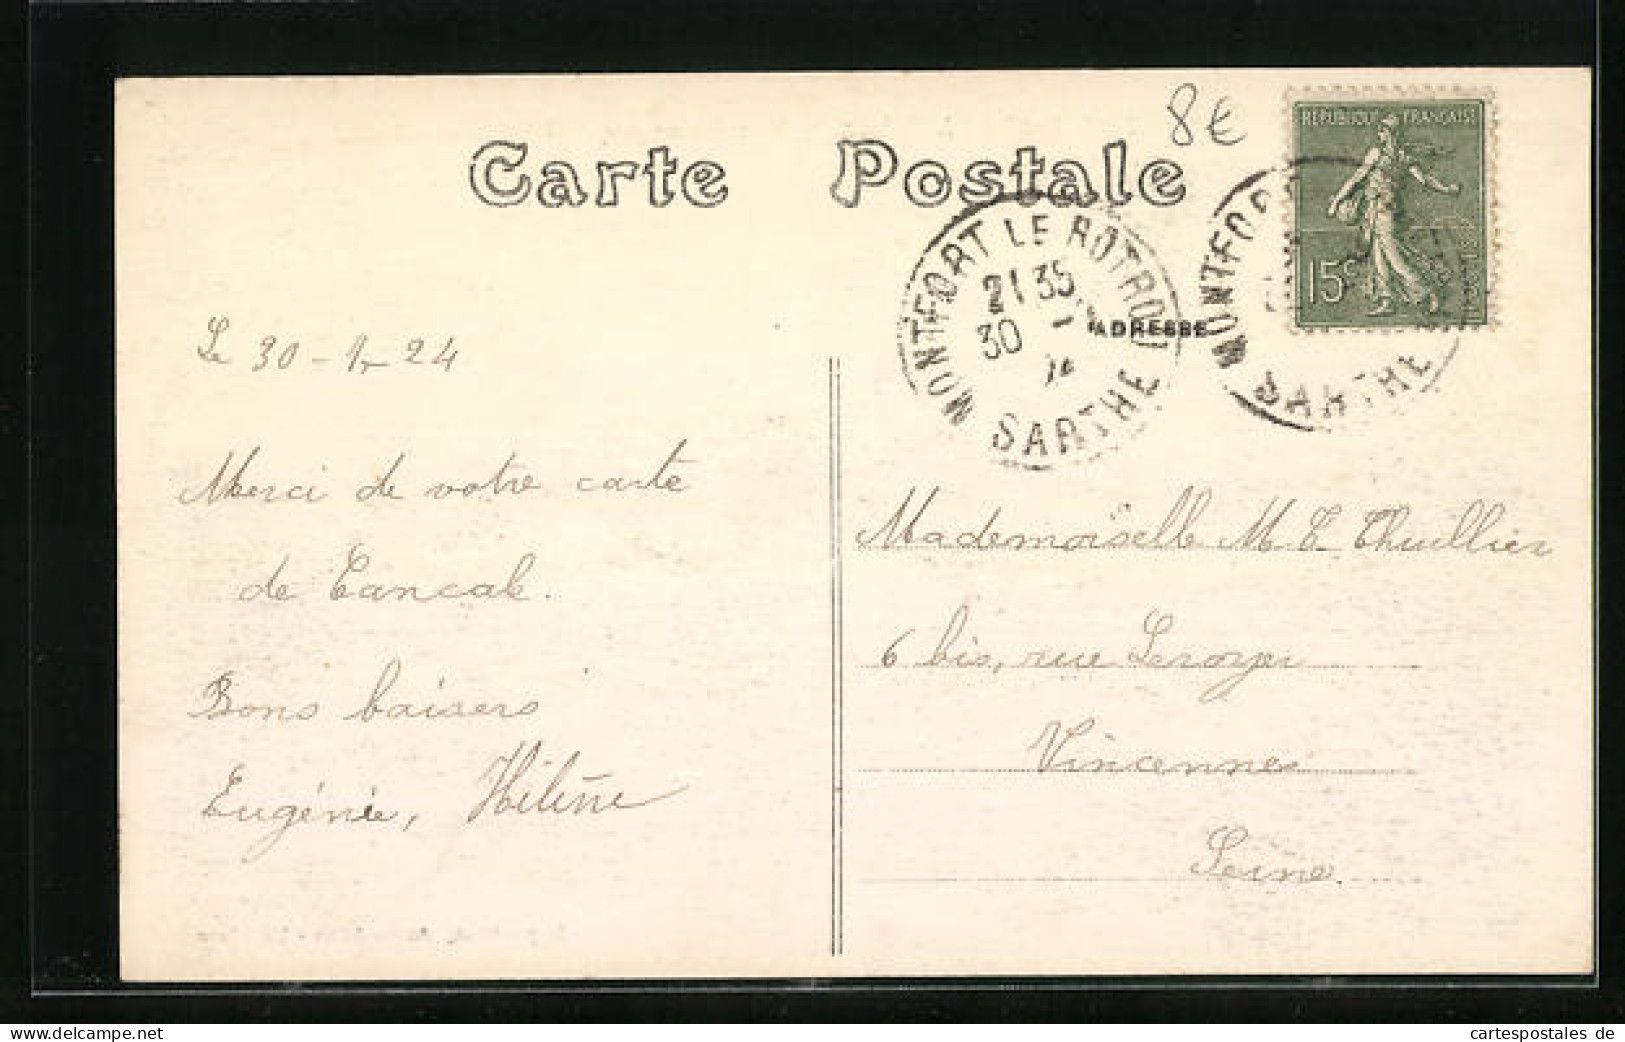 8€
Carte Postale
REPUBLIQUE FRANÇAISE
15c
MONTFORT LE ROTROU
21 35
30 - 1
24
SARTHE
MONTFOR
SARTHE
ADRESSE
Le 30-1-24
Merci de votre carte
de Cancale.
Bons baisers
Eugénie, Hélène
Mademoiselle M. T. Thuillier
6 bis, rue Leroyer
Vincennes
Seine.
delcampe.net
cartespostales de